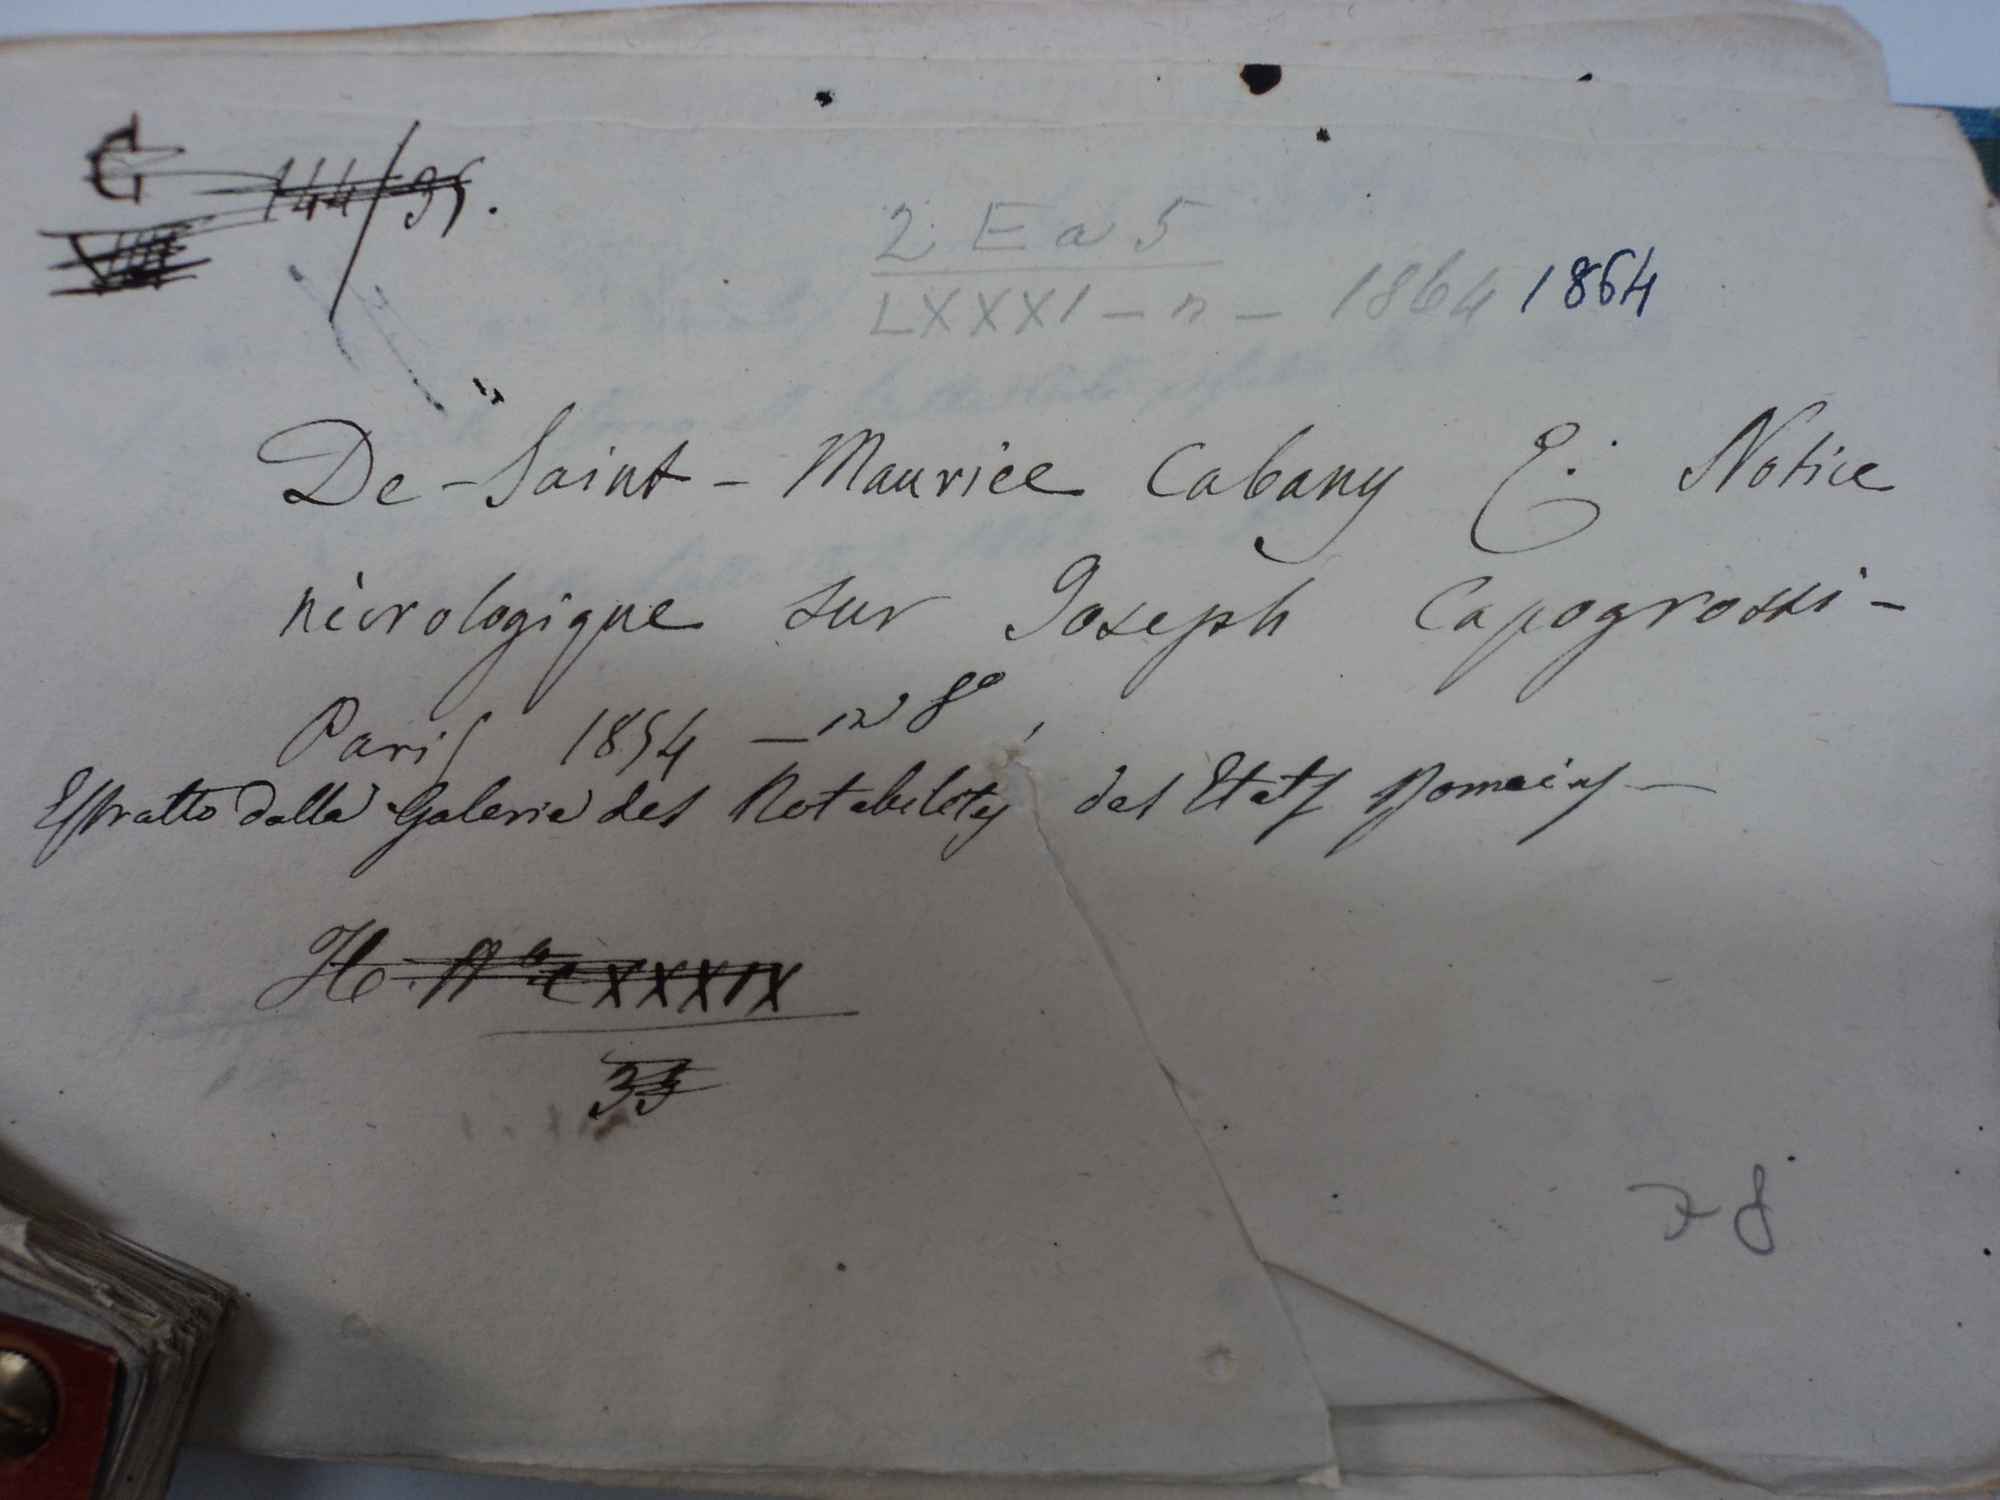 G 144/35.
VIII
2 E a 5
LXXXI - n - 1864 1864
De-Saint-Maurice Cabany E. Notice
nécrologique sur Joseph Capogrossi-
Paris 1854 - in 8º
Estratto dalla Galerie des Notabilités des Etats Romains -
H. Aª CXXXIX
33
78